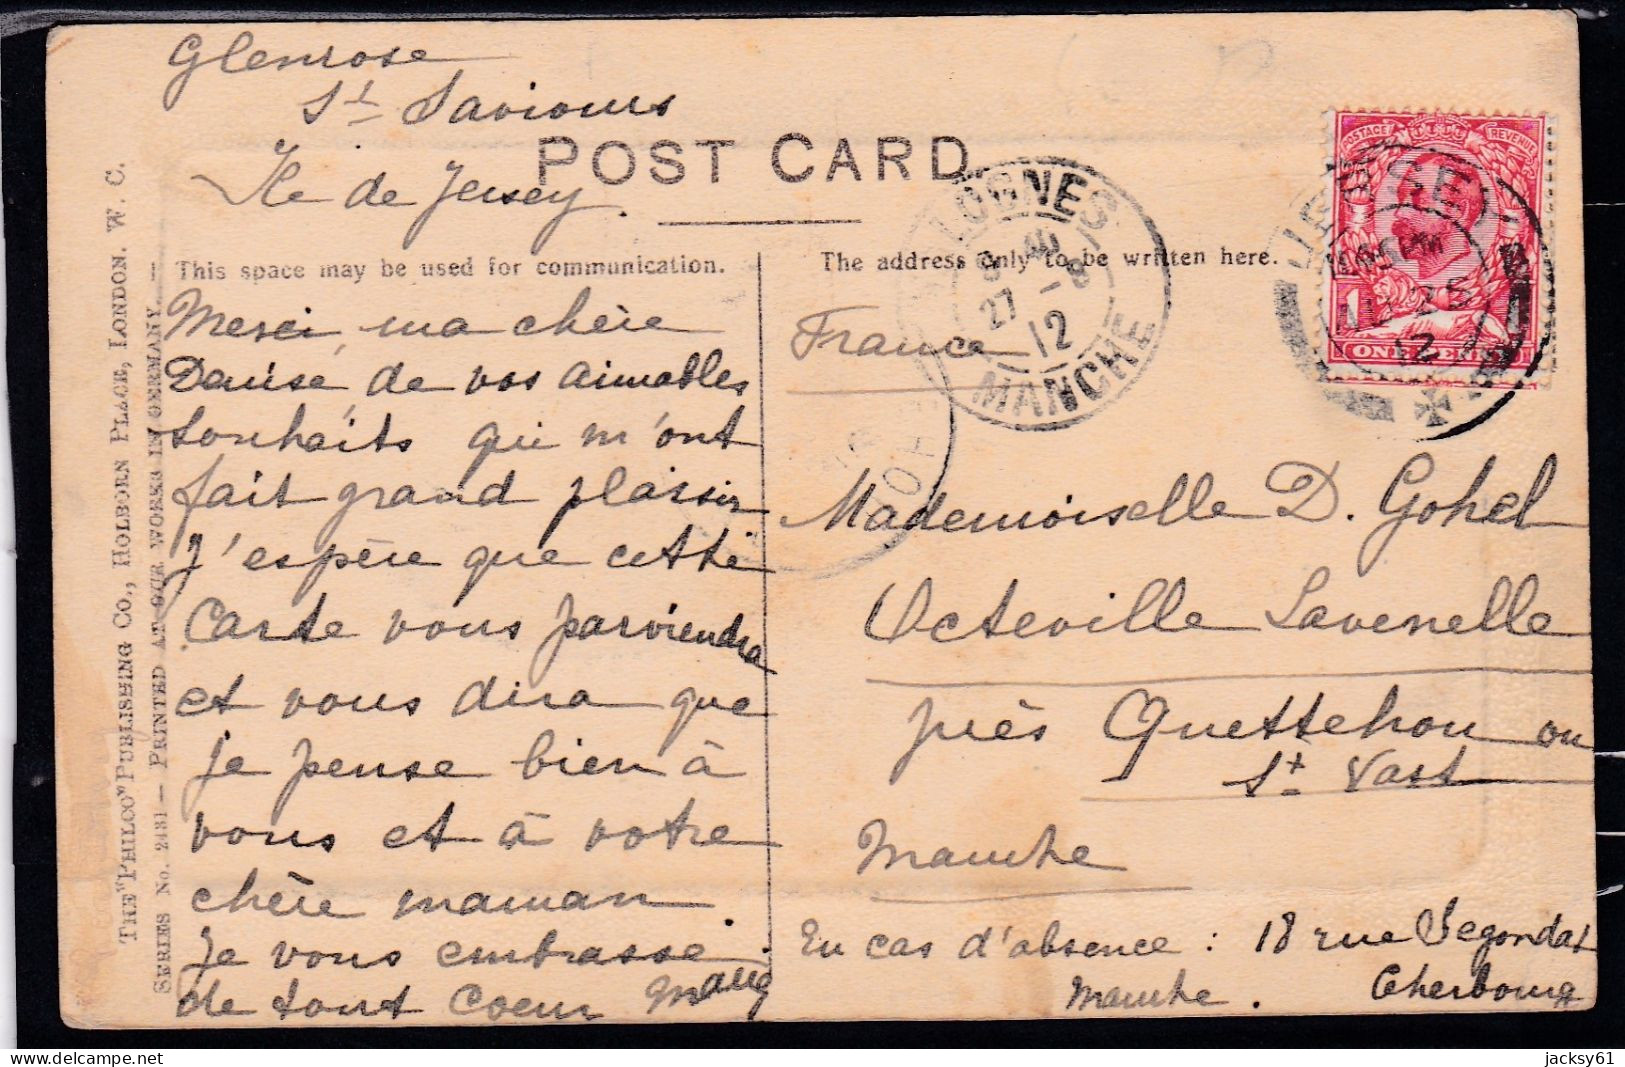 Glenrose
St Saviours
Ile de Jersey.
POST CARD
This space may be used for communication.
The address only to be written here.
Merci, ma chère
Denise de vos aimables
souhaits qui m'ont
fait grand plaisir
J'espère que cette
carte vous parviendra
et vous dira que
je pense bien à
vous et à votre
chère maman.
Je vous embrasse
de tout coeur
France
Mademoiselle D. Gohel
Octeville Lavenelle
près Quettehou ou
St Vast
Manche
En cas d'absence : 18 rue Segondat
Manche. Cherbourg
THE "PHILCO" PUBLISHING CO., HOLBORN PLACE, LONDON. W. C.
SERIES No. 2431 — PRINTED AT OUR WORKS IN GERMANY. —
MANCHE
27 - 8
12
POSTAGE REVENUE
ONE PENNY
JERSEY
25
12
jacksy61